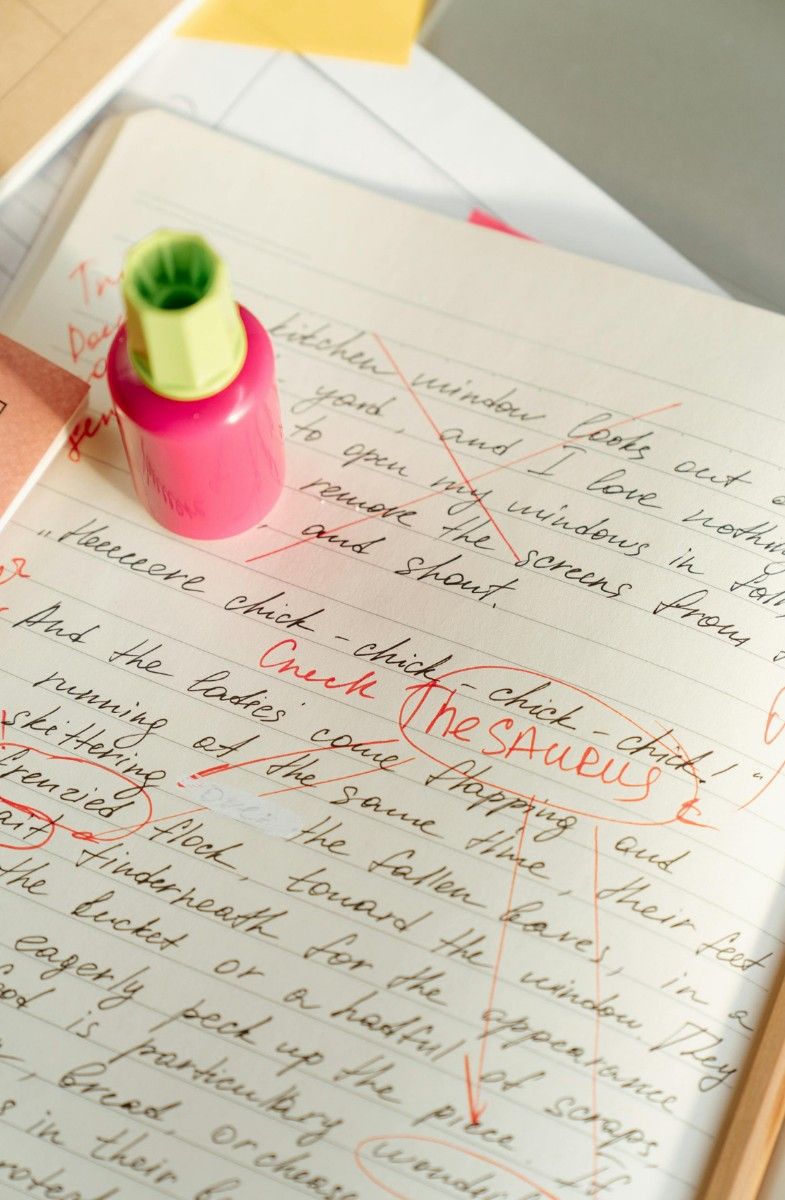 kitchen window looks out
yard, and I love nothing
to open my windows in fall,
remove the screens from
, and shout.
„Heeeeere chick-chick-chick-chick!"
Check THeSAURUS
And the ladies' come flapping and
running at the same time, their feet
skittering over the fallen leaves, in a
frenzied flock, toward the window. They
ait tinderneath for the appearance
the bucket or a hatful of scraps,
eagerly peck up the piece. If
ood is particulary wonder
bread, or cheese
s in their